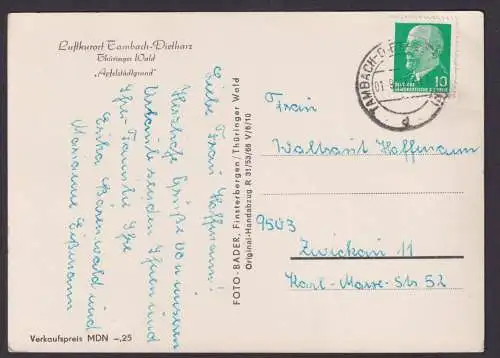 Luftkurort Tambach-Dietharz
Thüringer Wald
„Apfelstädtgrund"
Liebe Frau Hoffmann!
Herzliche Grüße von unserem
Urlaub senden Ihnen und
Ihrer Familie Ihre
Erika Bärenwald und
Marianne
Verkaufspreis MDN –,25
FOTO-BADER, Finsterbergen/Thüringer Wald
Original-Handabzug R 31/53/66 V/6/10
TAMBACH-D
10
DEUTSCHE
DEMOKRATISCHE REPUBLIK
Frau
Waltraut Hoffmann
9503
Zwickau 11
Karl-Marx-Str 52